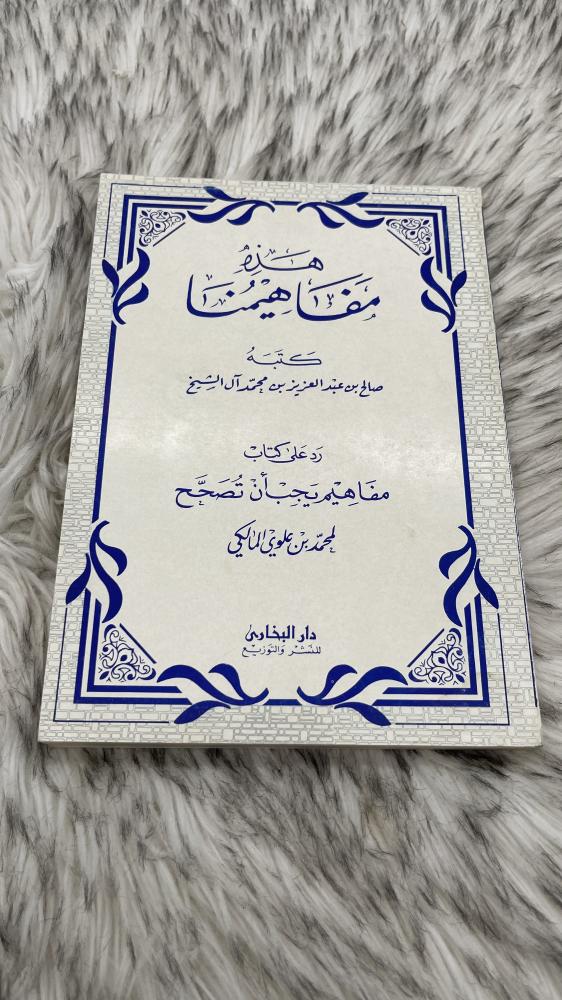 هَذِهِ
مَفَاهِيمُنَا
كَتَبَهُ
صالح بن عبد العزيز بن محمّد آل الشيخ
رد على كتاب
مفاهيم يَجِب أنْ تُصَحَّح
لمحمّد بن علوي المالكي
دار البخارى
للنشر والتوزيع